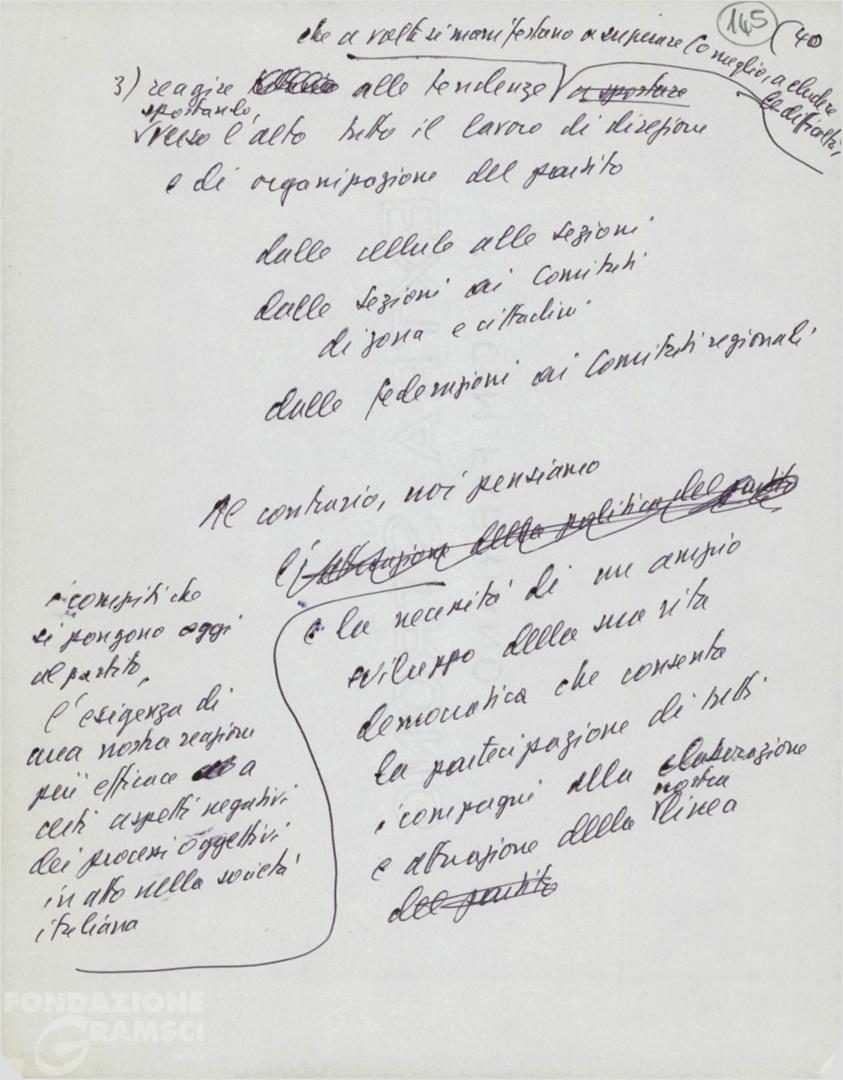 145
(40
che a volte si manifestano a superare (o meglio, a eludere
le difficoltà),
3) reagire alle tendenze a spostare
spostando,
verso l'alto tutto il lavoro di direzione
e di organizzazione del partito
dalle cellule alle sezioni
dalle sezioni ai Comitati
di zona e cittadini
dalle federazioni ai Comitati regionali
Al contrario, noi pensiamo
della politica del partito
i compiti che
si pongono oggi
al partito,
l'esigenza di
una nostra reazione
più efficace a
certi aspetti negativi
dei processi oggettivi
in atto nella società
italiana
e la necessità di un ampio
sviluppo della sua vita
democratica che consenta
la partecipazione di tutti
i compagni alla elaborazione
nostra
e attuazione della linea
del partito
FONDAZIONE
GRAMSCI